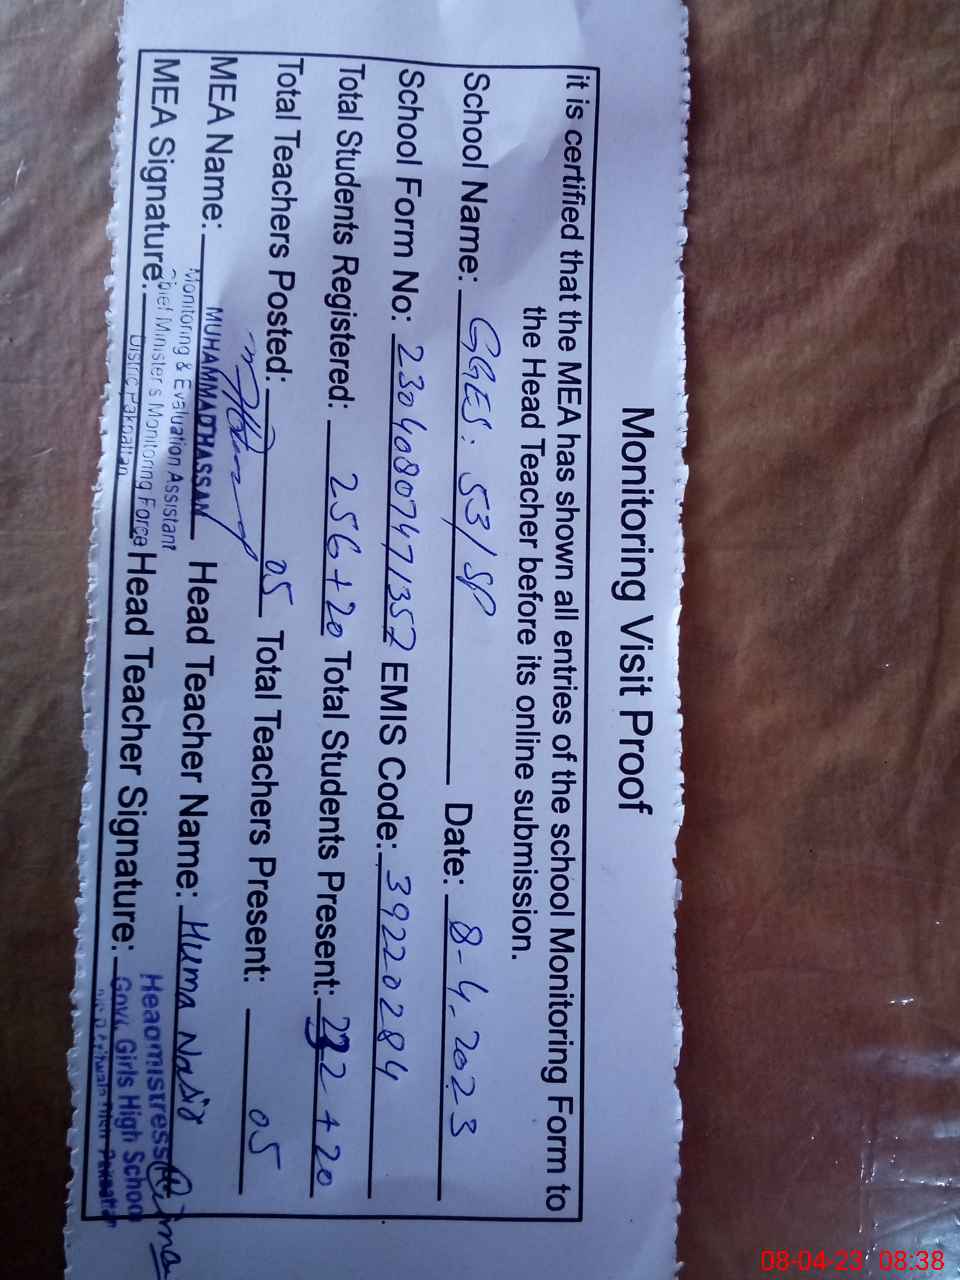 Monitoring Visit Proof
it is certified that the MEA has shown all entries of the school Monitoring Form to
the Head Teacher before its online submission.
School Name: GGES: 53/SP Date: 8-4-2023
School Form No: 23040807471352 EMIS Code: 39220284
Total Students Registered: 256+20 Total Students Present: 232+20
Total Teachers Posted: 05 Total Teachers Present: 05
MEA Name: MUHAMMAD HASSAN Head Teacher Name: Huma Nasir
Monitoring & Evaluation Assistant
Chief Minister's Monitoring Force
District Pakpattan
MEA Signature: Head Teacher Signature:
Headmistress
Govt. Girls High School
08-04-23 08:38